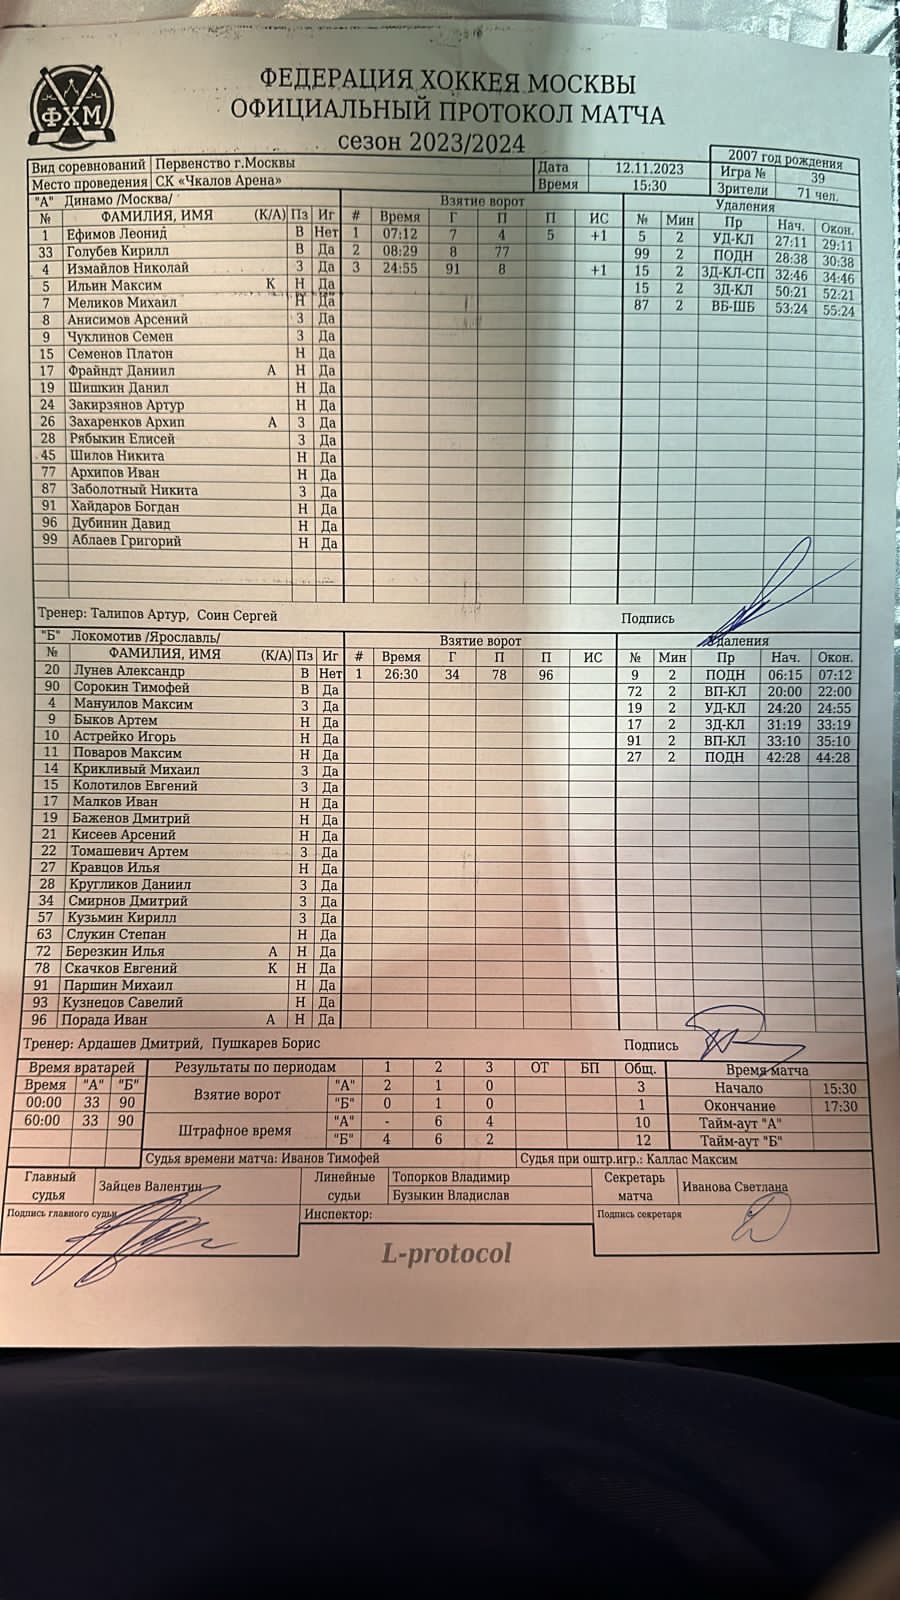 ФХМ
ФЕДЕРАЦИЯ ХОККЕЯ МОСКВЫ
ОФИЦИАЛЬНЫЙ ПРОТОКОЛ МАТЧА
сезон 2023/2024
2007 год рождения
Вид соревнований Первенство г.Москвы Дата 12.11.2023 Игра № 39
Место проведения СК «Чкалов Арена» Время 15:30 Зрители 71 чел.
"А" Динамо /Москва/ Взятие ворот Удаления
№ ФАМИЛИЯ, ИМЯ (К/А) Пз Иг # Время Г П П ИС № Мин Пр Нач. Окон.
1 Ефимов Леонид В Нет 1 07:12 7 4 5 +1 5 2 УД-КЛ 27:11 29:11
33 Голубев Кирилл В Да 2 08:29 8 77 99 2 ПОДН 28:38 30:38
4 Измайлов Николай З Да 3 24:55 91 8 +1 15 2 ЗД-КЛ-СП 32:46 34:46
5 Ильин Максим К Н Да 15 2 ЗД-КЛ 50:21 52:21
7 Меликов Михаил Н Да 87 2 ВБ-ШБ 53:24 55:24
8 Анисимов Арсений З Да
9 Чуклинов Семен З Да
15 Семенов Платон Н Да
17 Фрайндт Даниил А Н Да
19 Шишкин Данил Н Да
24 Закирзянов Артур Н Да
26 Захаренков Архип А З Да
28 Рябыкин Елисей З Да
45 Шилов Никита Н Да
77 Архипов Иван Н Да
87 Заболотный Никита З Да
91 Хайдаров Богдан Н Да
96 Дубинин Давид Н Да
99 Аблаев Григорий Н Да
Тренер: Талипов Артур, Соин Сергей Подпись
"Б" Локомотив /Ярославль/ Взятие ворот Удаления
№ ФАМИЛИЯ, ИМЯ (К/А) Пз Иг # Время Г П П ИС № Мин Пр Нач. Окон.
20 Лунев Александр В Нет 1 26:30 34 78 96 9 2 ПОДН 06:15 07:12
90 Сорокин Тимофей В Да 72 2 ВП-КЛ 20:00 22:00
4 Мануилов Максим З Да 19 2 УД-КЛ 24:20 24:55
9 Быков Артем Н Да 17 2 ЗД-КЛ 31:19 33:19
10 Астрейко Игорь Н Да 91 2 ВП-КЛ 33:10 35:10
11 Поваров Максим Н Да 27 2 ПОДН 42:28 44:28
14 Крикливый Михаил З Да
15 Колотилов Евгений З Да
17 Малков Иван Н Да
19 Баженов Дмитрий Н Да
21 Кисеев Арсений Н Да
22 Томашевич Артем З Да
27 Кравцов Илья Н Да
28 Кругликов Даниил З Да
34 Смирнов Дмитрий З Да
57 Кузьмин Кирилл З Да
63 Слукин Степан Н Да
72 Березкин Илья А Н Да
78 Скачков Евгений К Н Да
91 Паршин Михаил Н Да
93 Кузнецов Савелий Н Да
96 Порада Иван А Н Да
Тренер: Ардашев Дмитрий, Пушкарев Борис Подпись
Время вратарей Результаты по периодам 1 2 3 ОТ БП Общ. Время матча
Время "А" "Б" Взятие ворот "А" 2 1 0 3 Начало 15:30
00:00 33 90 "Б" 0 1 0 1 Окончание 17:30
60:00 33 90 Штрафное время "А" - 6 4 10 Тайм-аут "А"
"Б" 4 6 2 12 Тайм-аут "Б"
Судья времени матча: Иванов Тимофей Судья при оштр.игр.: Каллас Максим
Главный судья Зайцев Валентин Линейные судьи Топорков Владимир Секретарь матча Иванова Светлана
Бузыкин Владислав
Подпись главного судьи Инспектор: Подпись секретаря
L-protocol